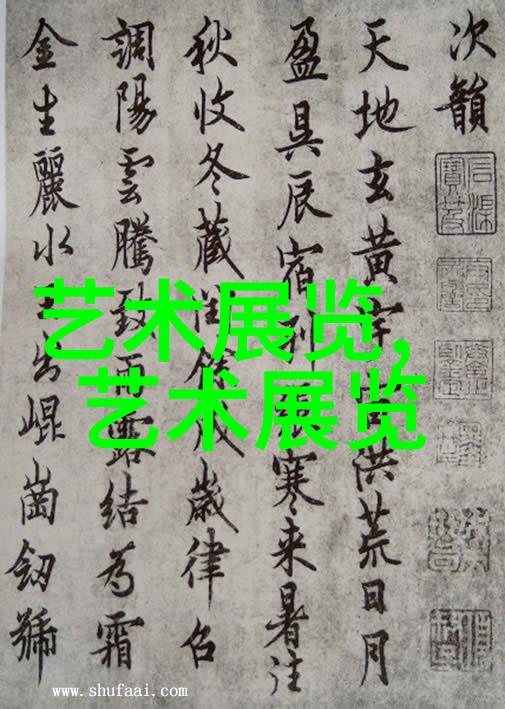 次韻
天地玄黄宇洪荒日月
盈昃辰宿列寒来暑往
秋收冬藏閏餘成歲律召
調陽雲騰致雨露結為霜
金生麗水玉出崐崗劒號
艺术展览,
艺术展览
www.shufaai.com